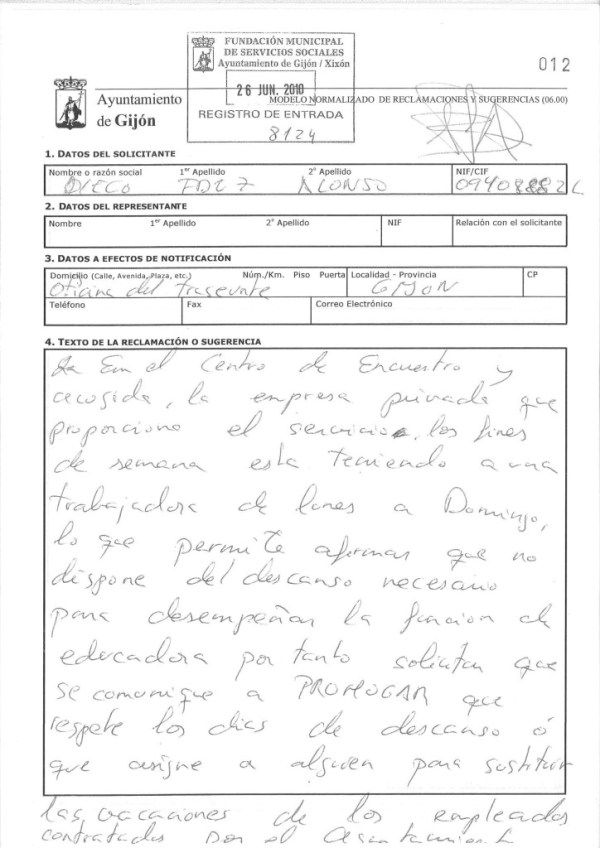 FUNDACIÓN MUNICIPAL
DE SERVICIOS SOCIALES
Ayuntamiento de Gijón / Xixón
012
26 JUN. 2010
Ayuntamiento
de Gijón
MODELO NORMALIZADO DE RECLAMACIONES Y SUGERENCIAS (06.00)
REGISTRO DE ENTRADA
8124
1. DATOS DEL SOLICITANTE
Nombre o razón social 1er Apellido 2º Apellido NIF/CIF
DIEGO FDEZ ALONSO
2. DATOS DEL REPRESENTANTE
Nombre 1er Apellido 2º Apellido NIF Relación con el solicitante
3. DATOS A EFECTOS DE NOTIFICACIÓN
Domicilio (Calle, Avenida, Plaza, etc.) Núm./Km. Piso Puerta Localidad - Provincia CP
Oficina del Traseunte GIJON
Teléfono Fax Correo Electrónico
4. TEXTO DE LA RECLAMACIÓN O SUGERENCIA
En el Centro de Encuentro y
acogida, la empresa privada que
proporciona el servicio, los fines
de semana esta teniendo a una
trabajadora de lunes a Domingo,
lo que permite afirmar que no
dispone del descanso necesario
para desempeñar la funcion de
educadora por tanto solicitan que
se comunique a PROHOGAR que
respete los dias de descanso ó
que asigne a alguien para sustituir
las vacaciones de los empleados
contratados por el